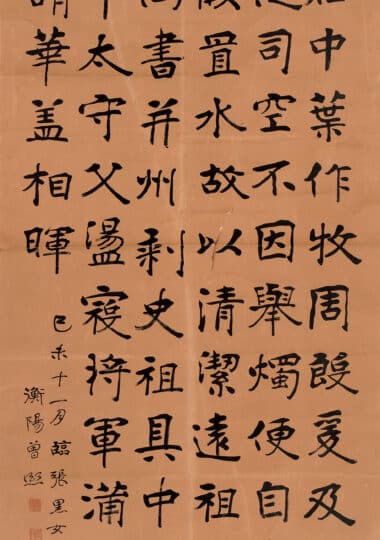 中葉作牧周殷爰及
司空不因舉燭便自
置水故以清潔遠祖
書并州刺史祖具中
太守父盪寇將軍蒲
華蓋相暉
己未十一月臨張黑女
衡陽曾熙